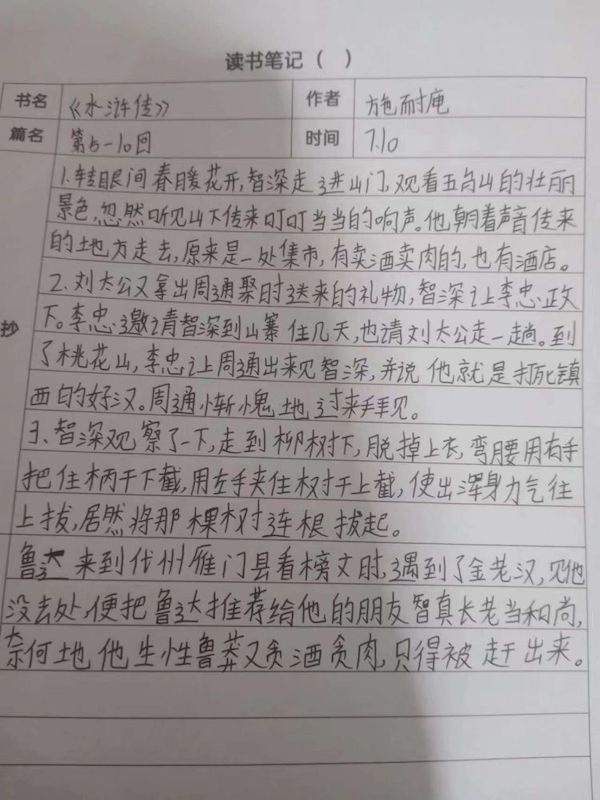 读书笔记（ ）
书名 《水浒传》 作者 施耐庵
篇名 第5-10回 时间 7.10
1.转眼间春暖花开,智深走进山门,观看五台山的壮丽
景色,忽然听见山下传来叮叮当当的响声。他朝着声音传来
的地方走去,原来是一处集市,有卖酒卖肉的,也有酒店。
2.刘太公又拿出周通聚时送来的礼物,智深让李忠收
下。李忠邀请智深到山寨住几天,也请刘太公走一趟。到
抄
了桃花山,李忠让周通出来见智深,并说他就是打死镇
西的好汉。周通惭愧地过来拜见。
3、智深观察了一下,走到柳树下,脱掉上衣,弯腰用右手
把住柄干下截,用左手夹住树干上截,使出浑身力气往
上拔,居然将那棵树连根拔起。
鲁达来到代州雁门县看榜文时,遇到了金老汉,见他
没去处,便把鲁达推荐给他的朋友智真长老当和尚,
奈何地他生性鲁莽又贪酒贪肉,只得被赶出来。